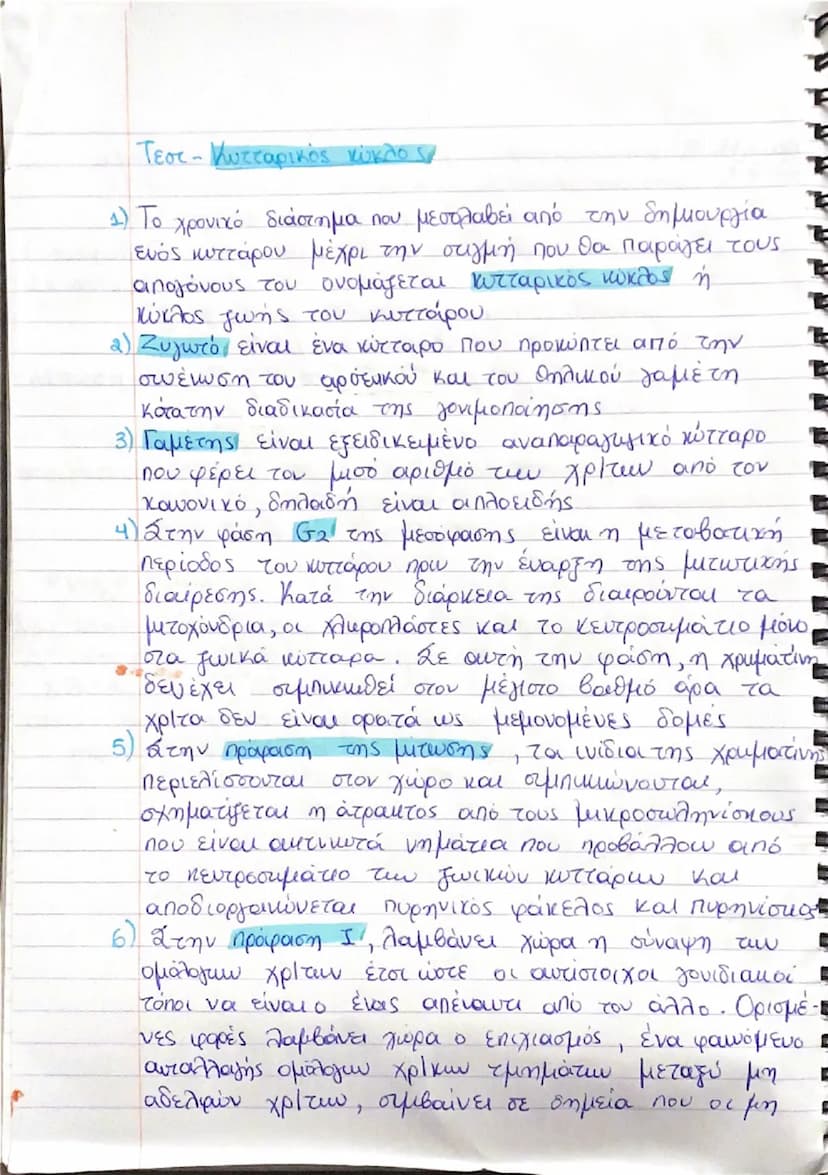 Τεστ - Κυτταρικός κύκλος
1) Το χρονικό διάστημα που μεσολαβεί από την δημιουργία
ενός κυττάρου μέχρι την στιγμή που θα παράγει τους
απογόνους του ονομάζεται κυτταρικός κύκλος ή
κύκλος ζωής του κυττάρου
2) Ζυγωτό είναι ένα κύτταρο που προκύπτει από την
συνένωση του αρσενικού και του θηλικού γαμέτη
κατα την διαδικασία της γονιμοποίησης
3) Γαμέτης είναι εξειδικευμένο αναπαραγωγικό κύτταρο
που φέρει τον μισό αριθμό των χρ/των από τον
κανονικό, δηλαδή είναι απλοειδής
4) Στην φάση G2 της μεσόφασης είναι η μεταβατική
περίοδος του κυττάρου πριν την έναρξη της μιτωτικής
διαίρεσης. Κατά την διάρκεια της διαιρούνται τα
μιτοχόνδρια, οι χλωροπλάστες και το κεντροσωμάτιο μόνο
στα ζωικά κύτταρα. Σε αυτή την φάση, η χρωματίνη
δεν έχει συμπυκνωθεί στον μέγιστο βαθμό άρα τα
χρ/τα δεν είναι ορατά ως μεμονομένες δομές
5) Στην πρόφαση της μίτωσης, τα ινίδια της χρωματίνης
περιελίσσονται στον χώρο και συμπυκνώνονται,
σχηματίζεται η άτρακτος από τους μικροσωληνίσκους
που είναι ακτινωτά νημάτια που προβάλλουν από
το κεντροσωμάτιο των ζωικών κυττάρων και
αποδιοργανώνεται πυρηνικός φάκελος και πυρηνίσκος
6) Στην πρόφαση Ι, λαμβάνει χώρα η σύναψη των
ομόλογων χρ/των έτσι ώστε οι αντίστοιχοι γονιδιακοί
τόποι να είναι ο ένας απέναντι από τον άλλο. Ορισμέ-
νες φορές λαμβάνει χώρα ο επιχιασμός, ένα φαινόμενο
ανταλλαγής ομόλογων χρ/κων τμημάτων μεταξύ μη
αδελφών χρ/των, συμβαίνει σε σημεία που οι μη